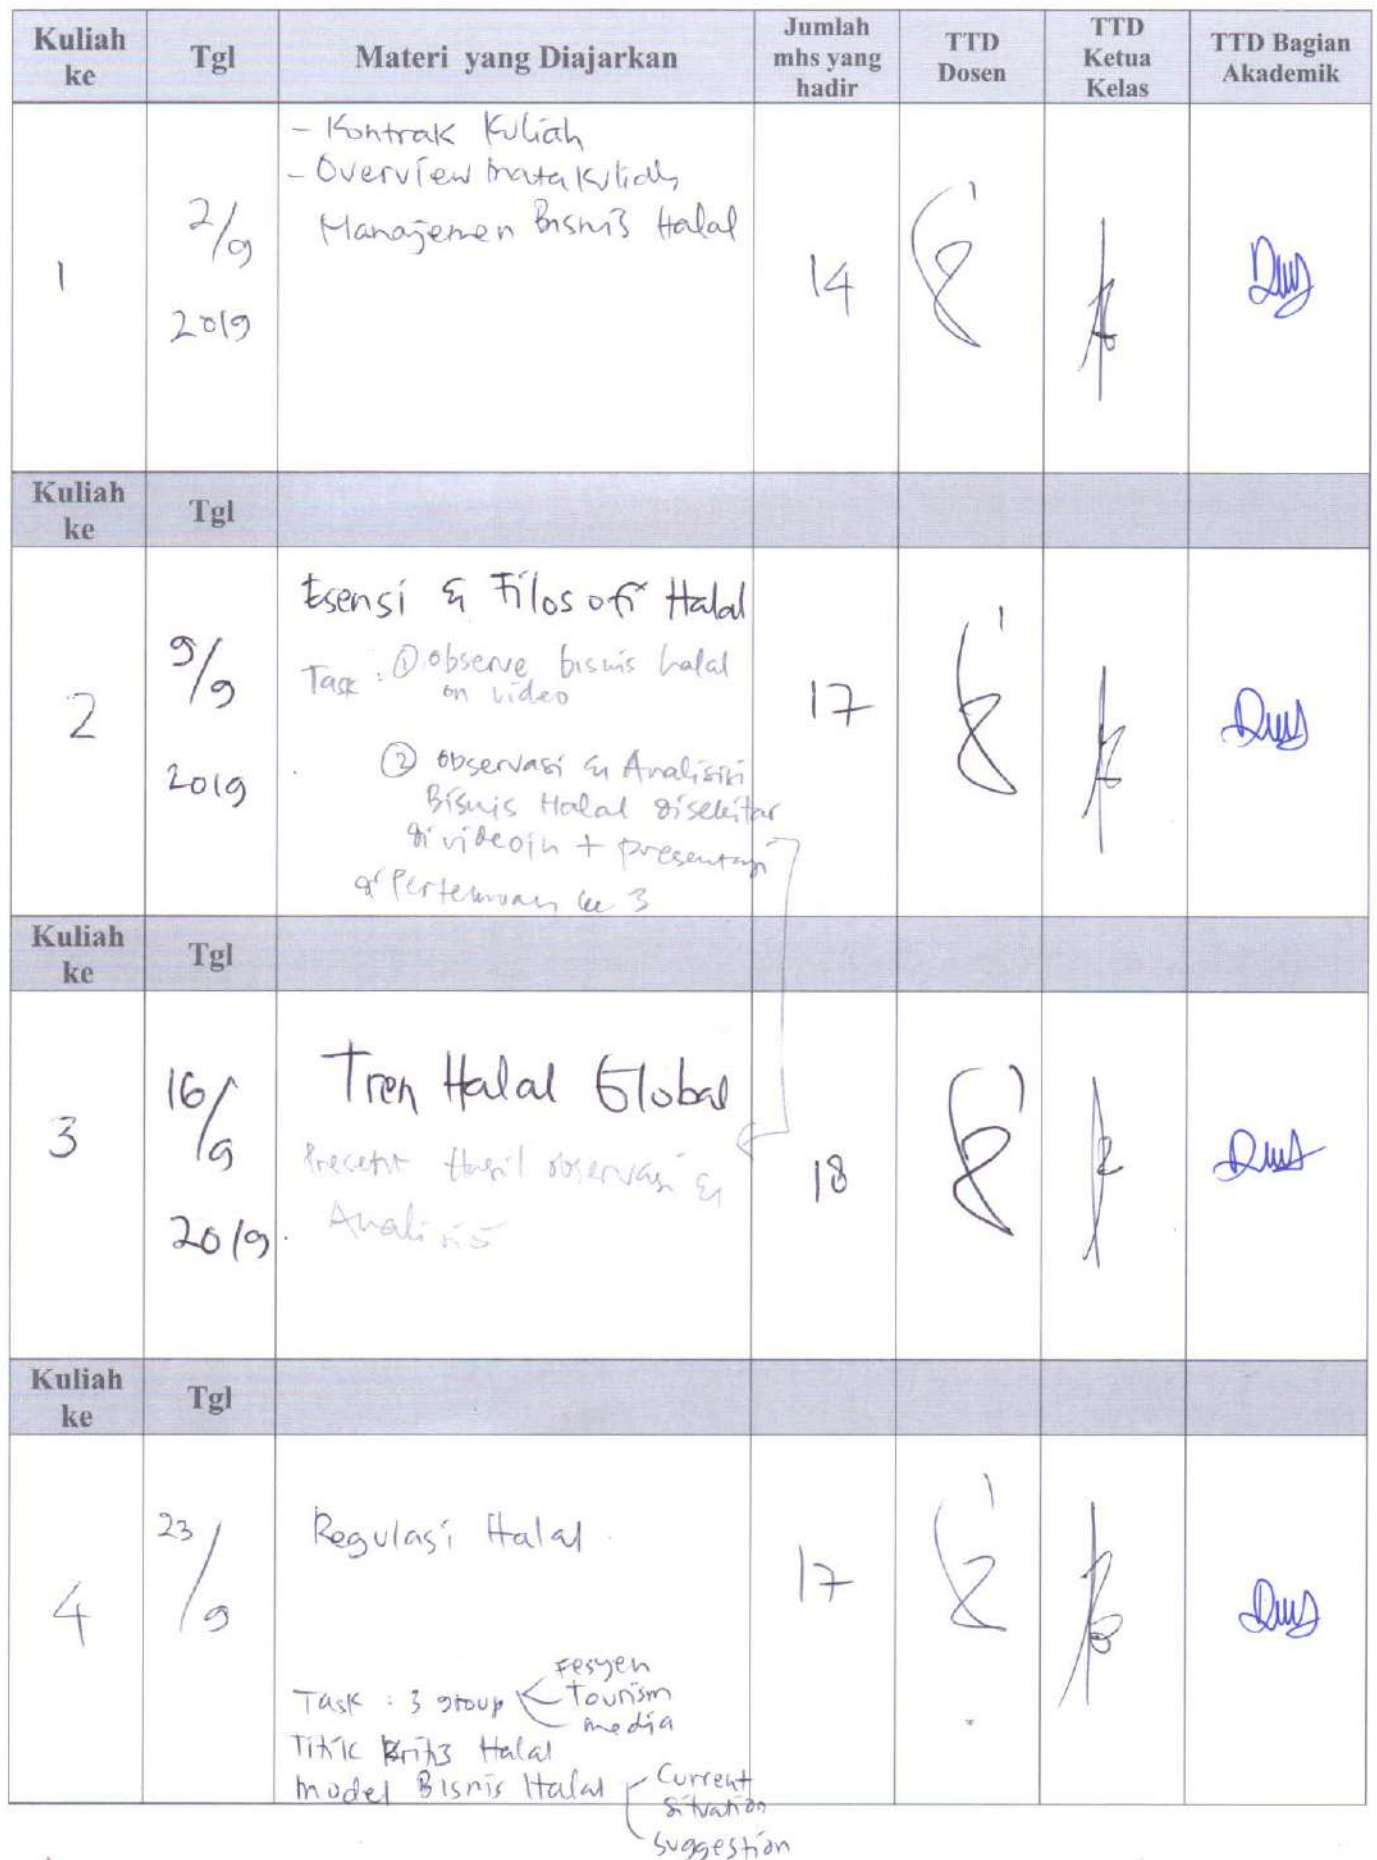 Kuliah ke Tgl Materi yang Diajarkan Jumlah mhs yang hadir TTD Dosen TTD Ketua Kelas TTD Bagian Akademik
- Kontrak Kuliah
- Overview mata kuliah
Manajemen Bisnis Halal
1
2/9
2019
14
Kuliah ke Tgl
Esensi & Filosofi Halal
Task : ① observe bisnis halal
on video
② observasi & Analisis
Bisnis Halal disekitar
di videoin + presentasi
di Pertemuan ke 3
2
9/9
2019
17
Kuliah ke Tgl
Tren Halal Global
Present Hasil observasi &
Analisis
3
16/9
2019
18
Kuliah ke Tgl
Regulasi Halal
4
23/9
17
Task : 3 group
Fesyen
Tourism
media
Titik Kritis Halal
Model Bisnis Halal
Current
Situation
Suggestion